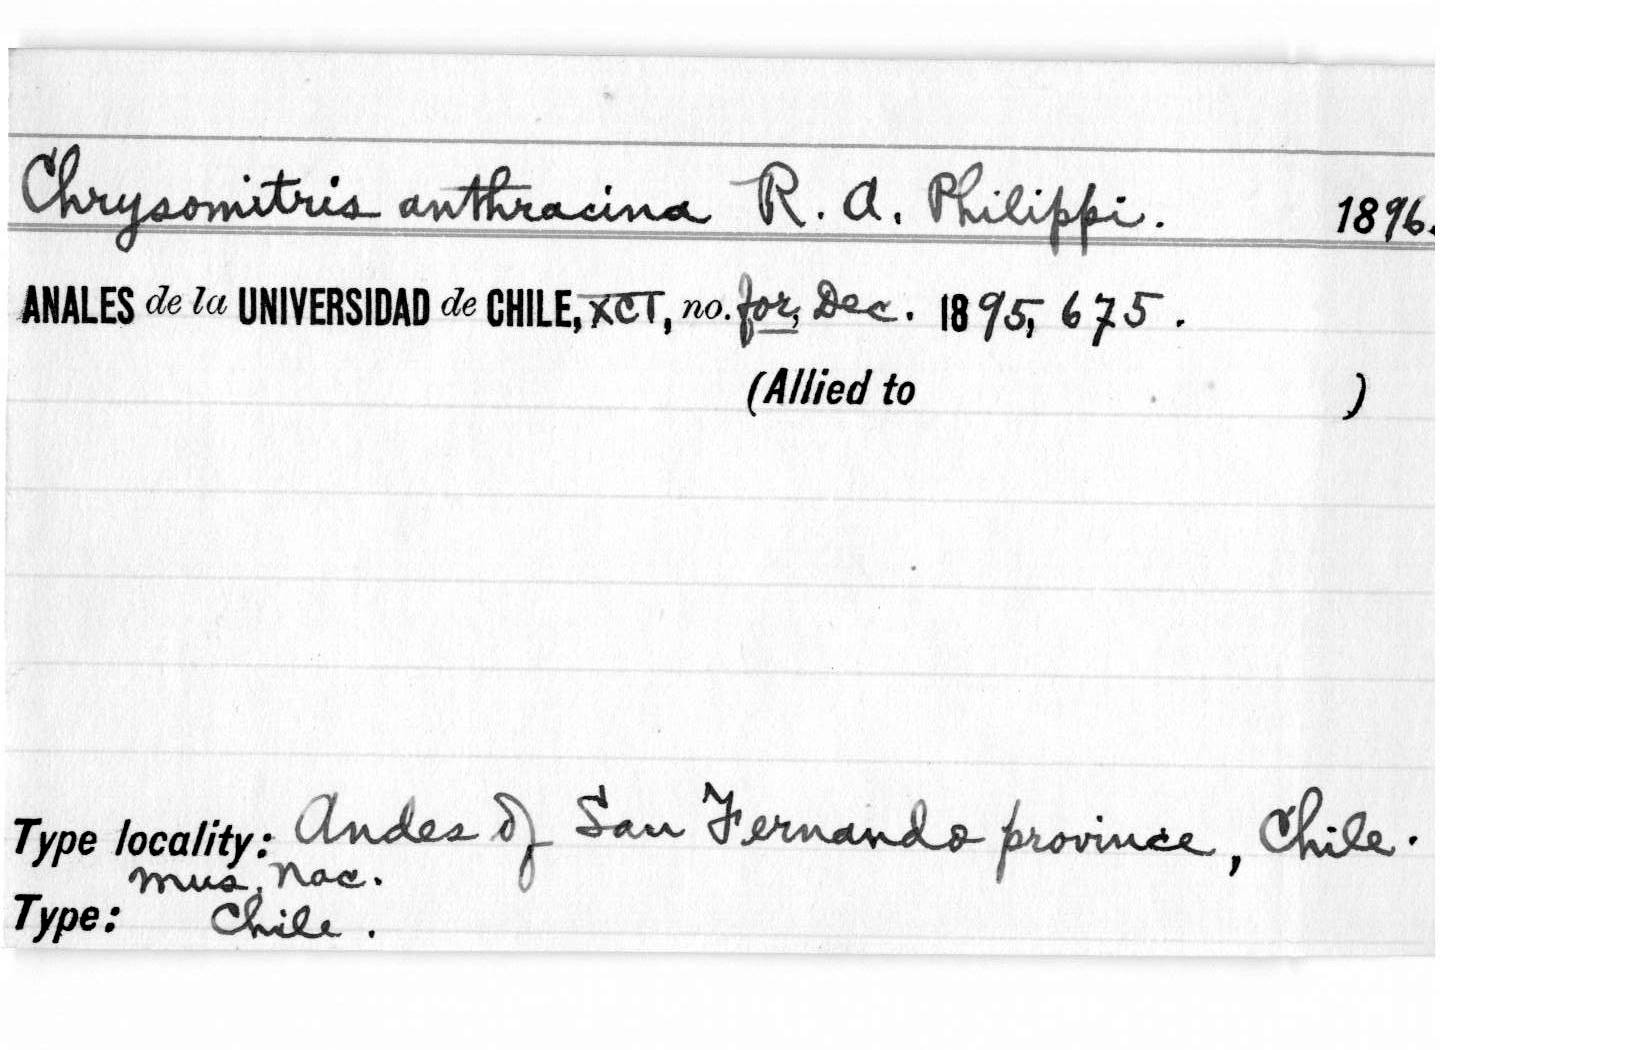 Chrysomitris anthracina R. A. Philippi. 1896.
ANALES de la UNIVERSIDAD de CHILE, XCI, no. for, Dec. 1895, 675.
(Allied to )
Type locality: Andes of San Fernando province, Chile.
Mus. Nac.
Type: Chile.